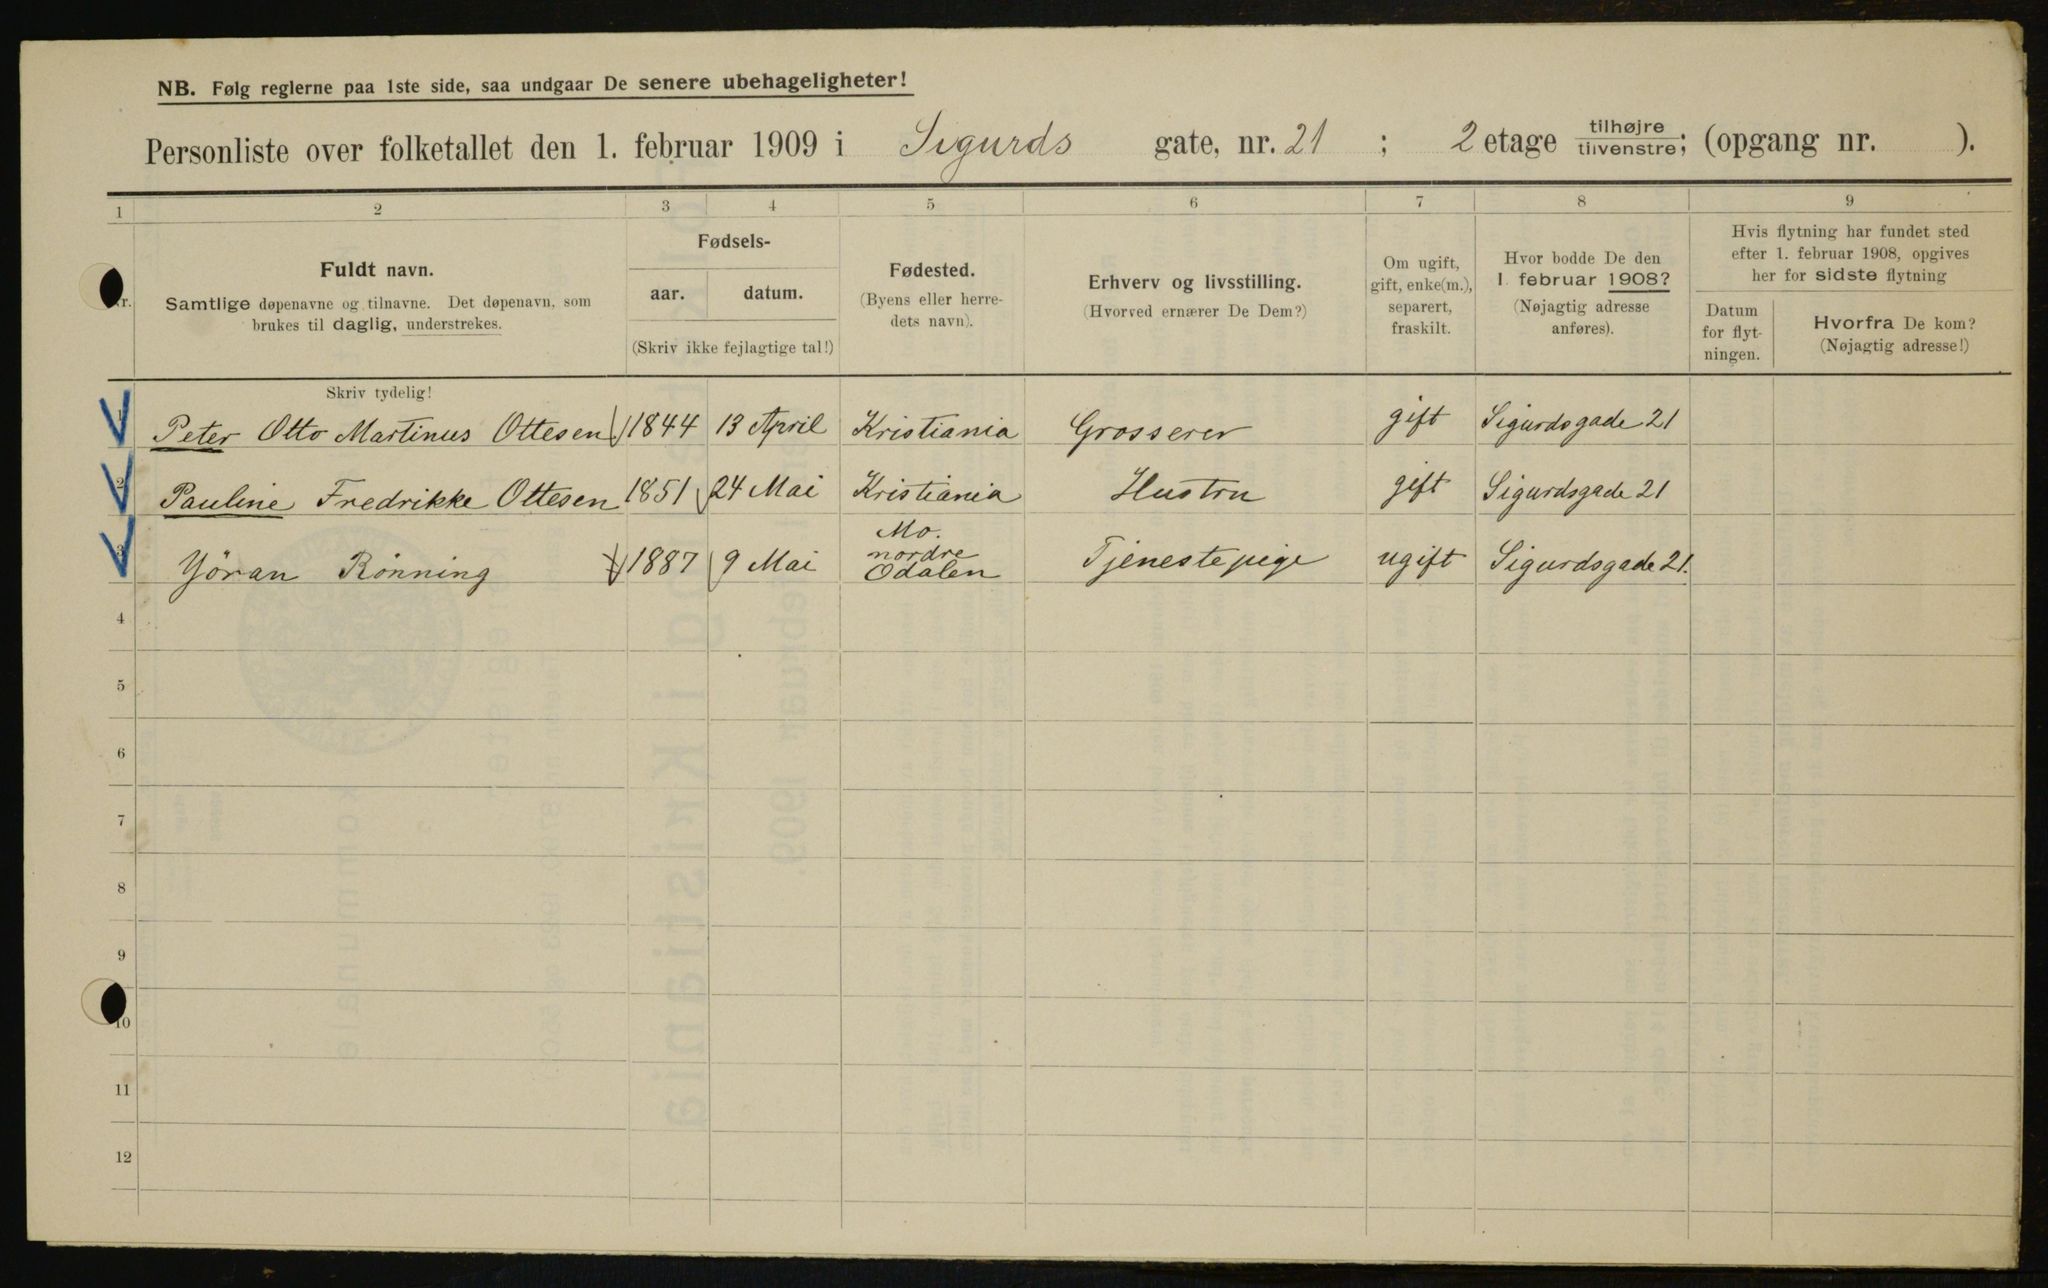 NB. Følg reglerne paa 1ste side, saa undgaar De senere ubehageligheter!
Personliste over folketallet den 1. februar 1909 i Sigurds gate, nr. 21 ; 2 etage tilhøjre tilvenstre; (opgang nr. ).
1 2 3 4 5 6 7 8 9
Nr.
Fuldt navn.
Samtlige døpenavne og tilnavne. Det døpenavn, som
brukes til daglig, understrekes.
Fødsels-
aar. datum.
(Skriv ikke fejlagtige tal!)
Fødested.
(Byens eller herre-
dets navn).
Erhverv og livsstilling.
(Hvorved ernærer De Dem?)
Om ugift,
gift, enke(m.),
separert,
fraskilt.
Hvor bodde De den
1. februar 1908?
(Nøjagtig adresse
anføres).
Hvis flytning har fundet sted
efter 1. februar 1908, opgives
her for sidste flytning
Datum
for flyt-
ningen.
Hvorfra De kom?
(Nøjagtig adresse!)
Skriv tydelig!
1 Peter Otto Martinus Ottesen 1844 13 April Kristiania Grosserer gift Sigurdsgade 21
2 Pauline Fredrikke Ottesen 1851 24 Mai Kristiania Hustru gift Sigurdsgade 21
3 Yöran Rönning 1887 9 Mai Mo. nordre Odalen Tjenestepige ugift Sigurdsgade 21.
4
5
6
7
8
9
10
11
12